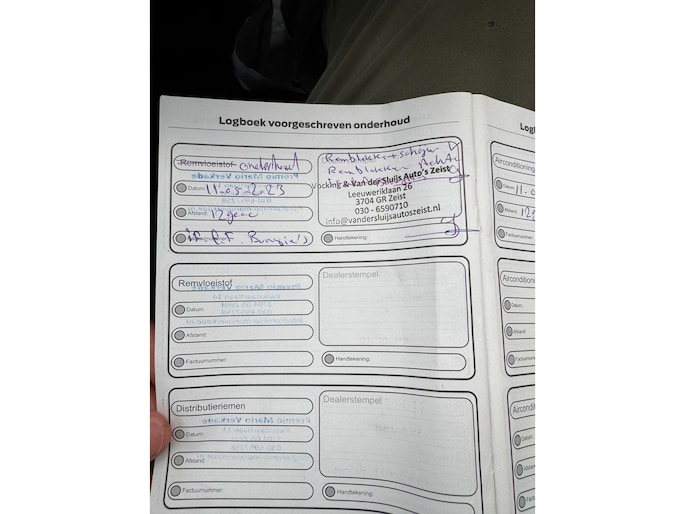 Logboek voorgeschreven onderhoud
Remvloeistof onderhoud
Datum: 11-05-2023
Afstand:
Remblokken + schijven V
Remblokken Achter
Vocking & Van der Sluijs Auto's Zeist
Leeuweriklaan 26
3704 GR Zeist
030 - 6590710
info@vandersluijsautoszeist.nl
Handtekening:
Remvloeistof
Datum:
Afstand:
Factuurnummer:
Dealerstempel
Handtekening:
Distributieriemen
Datum:
Afstand:
Factuurnummer:
Dealerstempel
Handtekening:
Logb
Airconditioning
Datum:
Afstand:
Factuurnummer:
Airconditioni
Datum:
Afstand:
Factuurnumme
Aircondit
Datum:
Afstand:
Factuurn